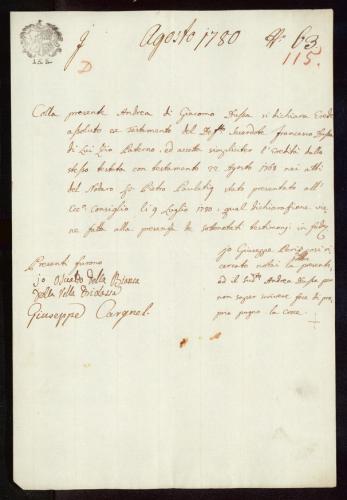 J Agosto 1780 N° 63
D 115.
Colla presente Andrea di Giacomo Diessa si dichiara Erede
assoluto ex Testamento del Sacerdote Francesco
di Lui Zio Paterno, ed accetta semplicite l'Eredità dello
stesso testata con testamento 22 Agosto 1768 nei atti
del Nodaro Sr. Pietro stato presentato all'
Ecc.mo Consiglio li 9 Luglio 1780, qual dichiarazione vie-
ne fatta alla presenza de sotonotati testimonj in fede
jo Giuseppe ri-
cercato notai la presente
ed il Andrea per
non saper scrivere fece di pro-
pria pugno la croce +
Presenti furono
jo Osualdo della Bianca
della Villa
Giuseppe Cargnel.